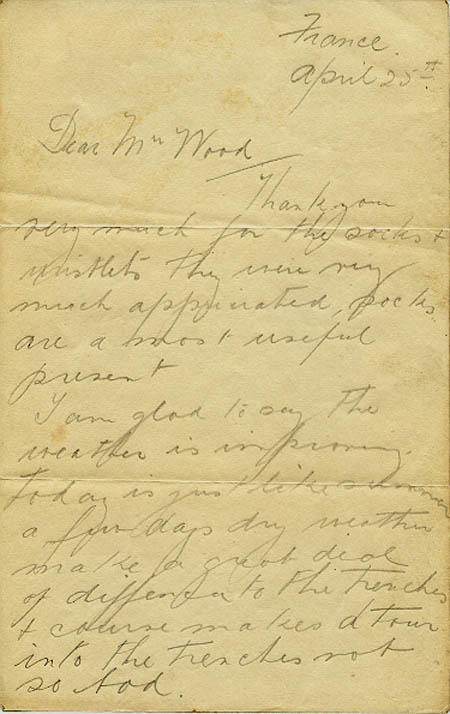 France.
April 25th
Dear Mrs Wood
Thank you
very much for the socks &
wristlets they were very
much appriciated, socks
are a most useful
present
I am glad to say the
weather is improving.
Today is just like summer
a few days dry weather
make a great deal
of differnce to the trenches
& course makes a tour
into the trenches not
so bad.